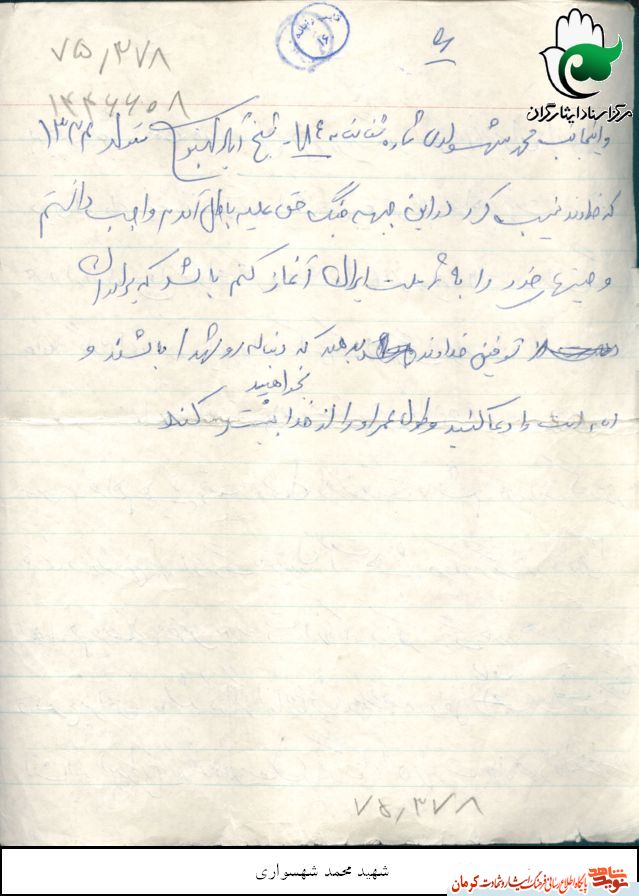 ۷۵/۳۷۸
۱۴۴۶۶۰۸
مرکز اسناد ایثارگران
و اینجانب محمد شهسواری شماره شناسنامه ۷۸۴ - متولد ۱۳۴۲
که خداوند نصیب کرد در این جبهه جنگ حق علیه باطل آمدم واجب دانستم
وصیتهای خود را به ملت ایران آغاز کنم باشد که برادران
توفیق خداوند بدهند که دنباله رو شهدا باشند و
امام امت را دعا کنید و طول عمر او را از خدا بخواهید
۷۵/۳۷۸
شهید محمد شهسواری
نوید شاهد
پایگاه اطلاع رسانی فرهنگ ایثار و شهادت کرمان